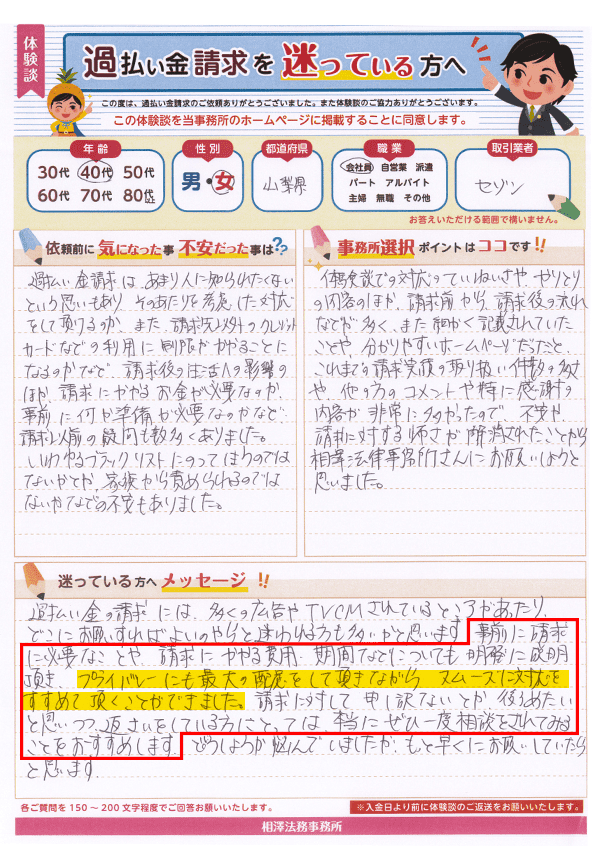 体験談
過払い金請求を迷っている方へ
この度は、過払い金請求のご依頼ありがとうございました。また体験談のご協力ありがとうございます。
この体験談を当事務所のホームページに掲載することに同意します。
年齢
30代 40代 50代
60代 70代 80代以上
性別
男・女
都道府県
山梨県
職業
会社員 自営業 派遣
パート アルバイト
主婦 無職 その他
取引業者
セゾン
お答えいただける範囲で構いません。
依頼前に気になった事 不安だった事は??
過払い金請求は、あまり人に知られたくない
という思いもあり、そのあたりを考慮した対応
をして頂けるのか、また、請求先以外のクレジット
カードなどの利用に制限がかかることに
なるのかなど、請求後の生活への影響の
ほか、請求にかかるお金が必要なのか、
事前に何か準備が必要なのかなど、
請求以前の疑問も数多くありました。
いわゆるブラックリストにのってしまうのでは
ないかとか、家族から責められるのでは
ないかなどの不安もありました。
事務所選択ポイントはココです!!
体験談での対応のていねいさや、やりとり
の内容のほか、請求前から、請求後の流れ
などが多く、また細かく記載されていた
ことや、分かりやすいホームページだったこと、
これまでの請求実績の取り扱い件数の多さ
や、他の方のコメントや特に感謝の
内容が非常に多かったので、不安や
請求に対する怖さが解消されたことから
相澤法律事務所さんにお願いしようと
思いました。
迷っている方へメッセージ!!
過払い金の請求には、多くの広告やTVCMされているところがあったり、
どこにお願いすればよいのやらと迷われる方も多いかと思います。事前に請求
に必要なことや、請求にかかる費用、期間などについても明確に説明
頂き、プライバシーにも最大の配慮をして頂きながら、スムーズに対応を
すすめて頂くことができました。請求に対して、申し訳ないとか、後ろめたい
と思いつつ、迷われている方にとっては、本当にぜひ一度相談をされてみる
ことをおすすめします。どうしようか悩んでいましたが、もっと早くにお願いしていたら
と思います。
各ご質問を150～200文字程度でご回答お願いいたします。
※入金日より前に体験談のご返送をお願いいたします。
相澤法務事務所